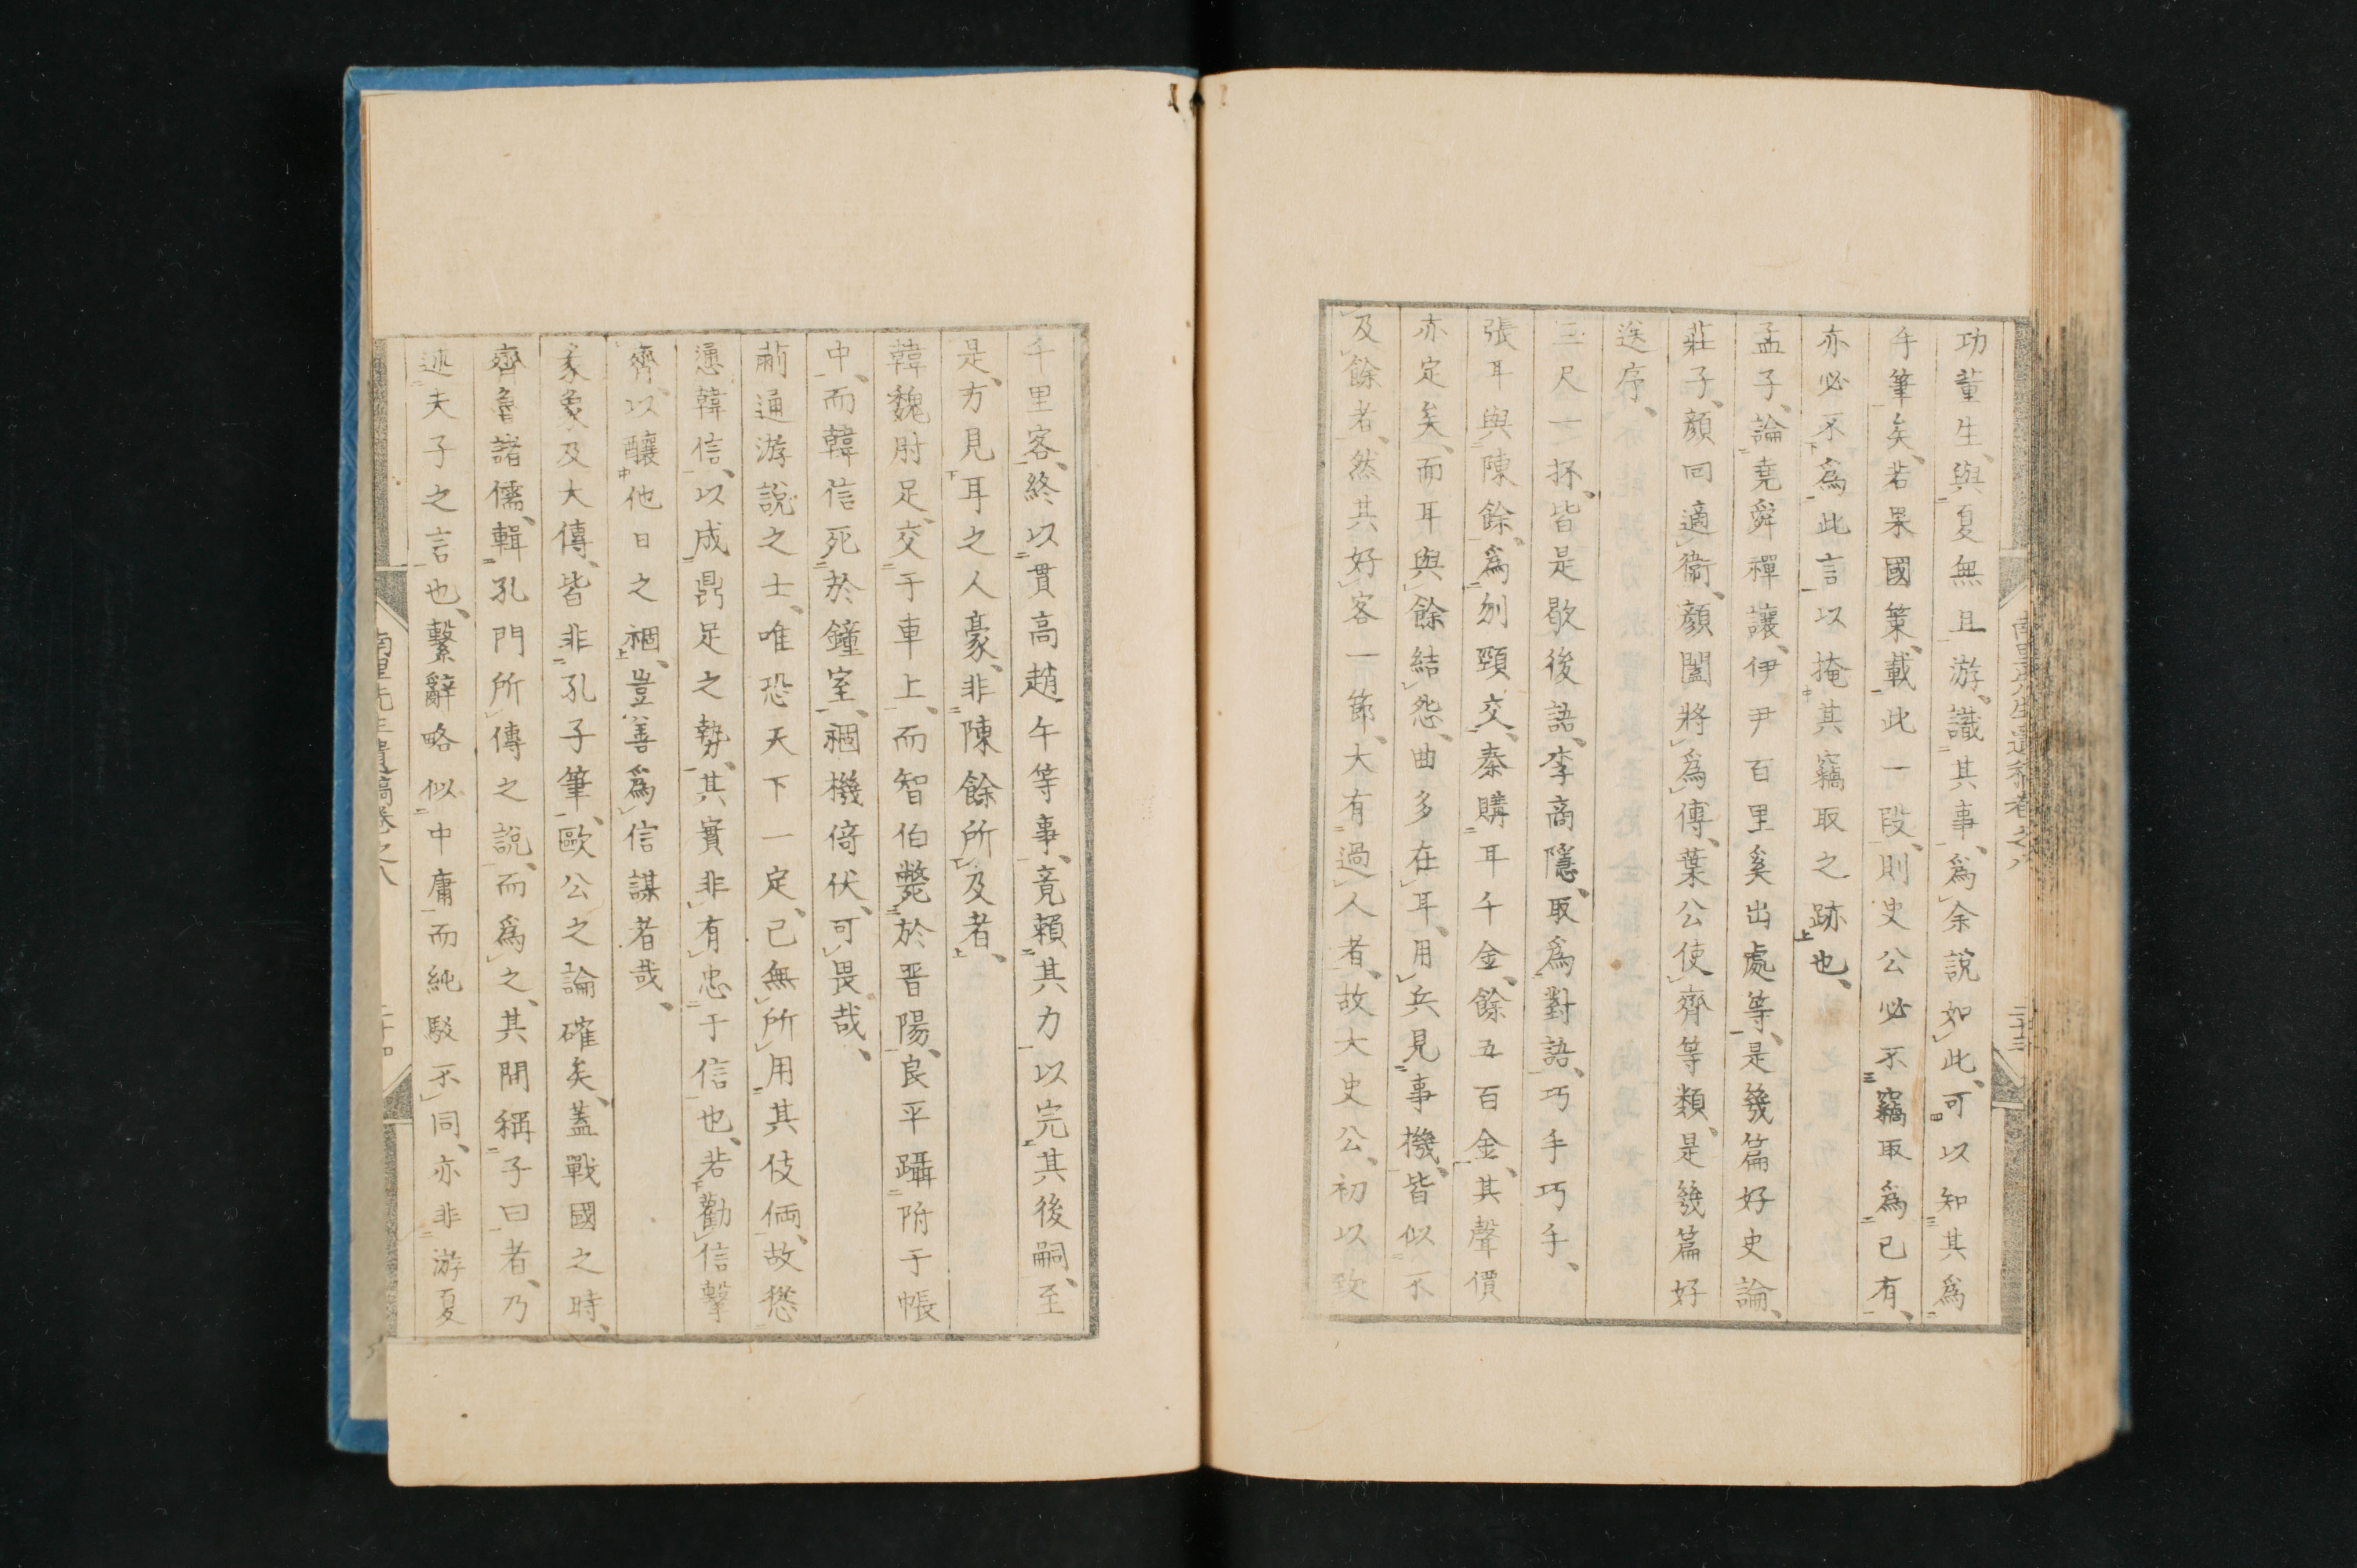 功董生、與夏無且游、識其事、爲余說如此、可以知其爲
手筆矣、若果國策、載此一段、則史公必不竊取爲已有、
亦必不爲此言以掩其竊取之跡也、
孟子、論堯舜禪讓、伊尹百里奚出處等、是幾篇好史論、
莊子、顏回適衞、顏闔將爲傅、葉公使齊等類、是幾篇好
送序、
三尺一抔、皆是歇後語、李商隱、取爲對語、巧手巧手、
張耳與陳餘、爲刎頸交、秦購耳千金、餘五百金、其聲價
亦定矣、而耳與餘結怨、曲多在耳、用兵見事機、皆似不
及餘者、然其好客一節、大有過人者、故大史公、初以致
千里客、終以貫高趙午等事、竟賴其力以完其後嗣、至
是、方見耳之人豪、非陳餘所及者、
韓魏肘足、交于車上、而智伯斃於晋陽、良平躡附于帳
中、而韓信死於鐘室、禍機倚伏、可畏哉、
蒯通游說之士、唯恐天下一定、已無所用其伎倆、故慫
慂韓信、以成鼎足之勢、其實非有忠于信也、若勸信擊
齊、以釀他日之禍、豈善爲信謀者哉、
彖象及大傳、皆非孔子筆、歐公之論確矣、蓋戰國之時、
齊魯諸儒、輯孔門所傳之說、而爲之、其間稱子曰者、乃
述夫子之言也、繫辭略似中庸而純駁不同、亦非游夏
南里先生遺稿卷之八